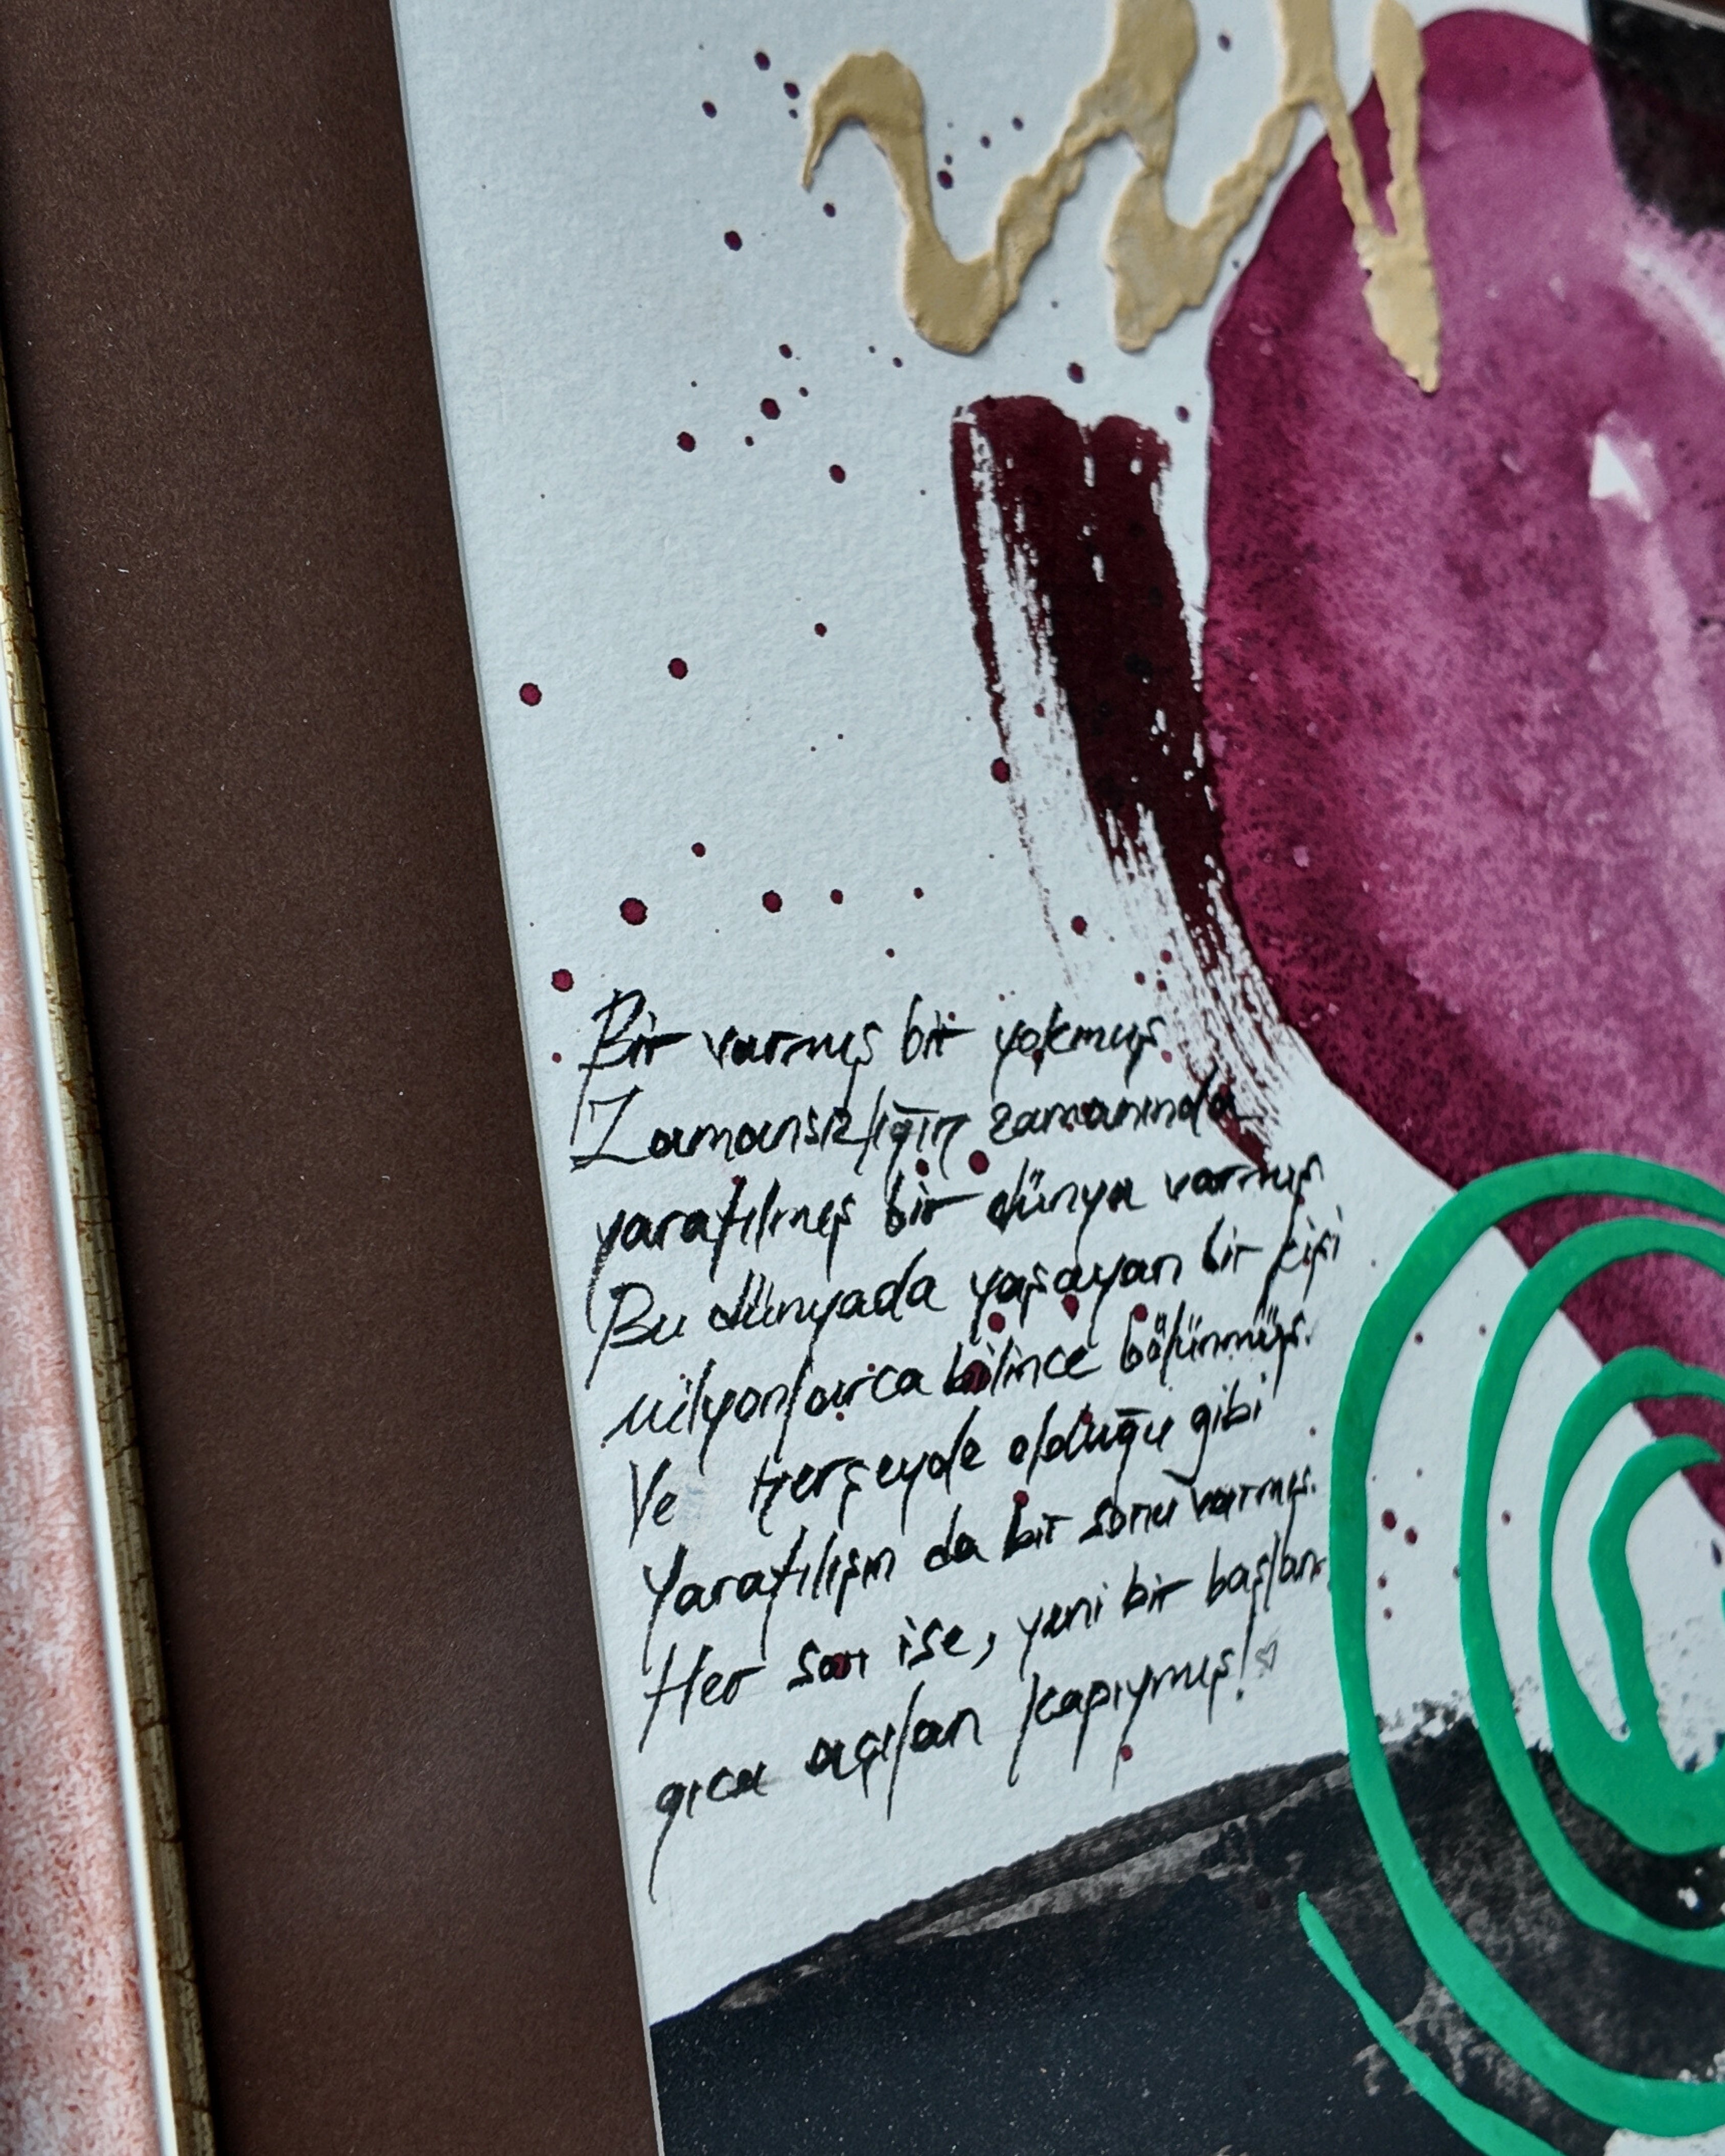 Bir varmış bir yokmuş
Zamansızlığın zamanında
yaratılmış bir dünya varmış
Bu dünyada yaşayan bir kişi
milyonlarca bilince bölünmüş.
Ve Herşeyde olduğu gibi
Yaratılışın da bir sonu varmış.
Her son ise, yeni bir başlan
gıca açılan kapıymış!